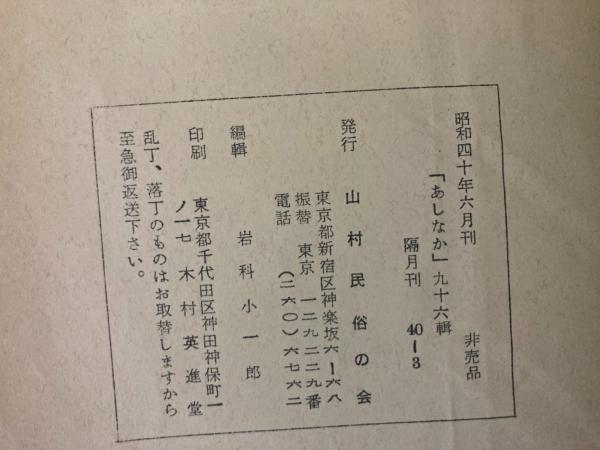 昭和四十年六月刊 非売品
「あしなか」九十六輯
隔月刊 40-3
発行 山村民俗の会
東京都新宿区神楽坂六ー六八
振替 東京 一二九二二九番
電話 (二六〇)六七六二
編輯 岩科小一郎
印刷 東京都千代田区神田神保町一
ノ一七 木村英進堂
乱丁、落丁のものはお取替しますから
至急御返送下さい。